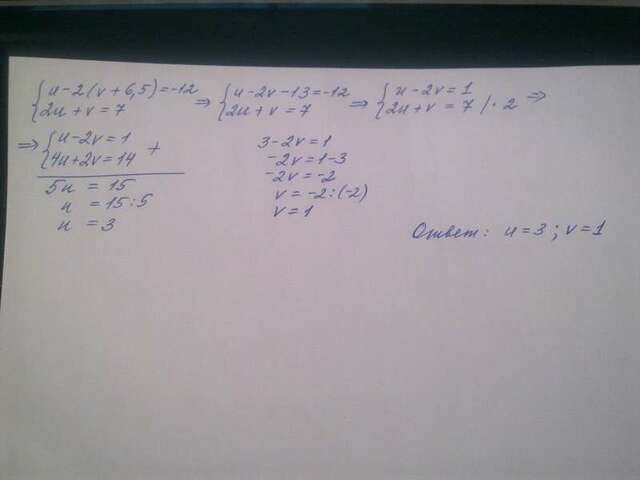 {u-2(v+6,5)=-12 ⇒ {u-2v-13=-12 ⇒ {u-2v=1 ⇒
2u+v=7 2u+v=7 2u+v=7 /·2
⇒ {u-2v=1 +
4u+2v=14
5u = 15
u = 15:5
u = 3
3-2v=1
-2v=1-3
-2v=-2
v=-2:(-2)
v=1
Ответ: u=3; v=1